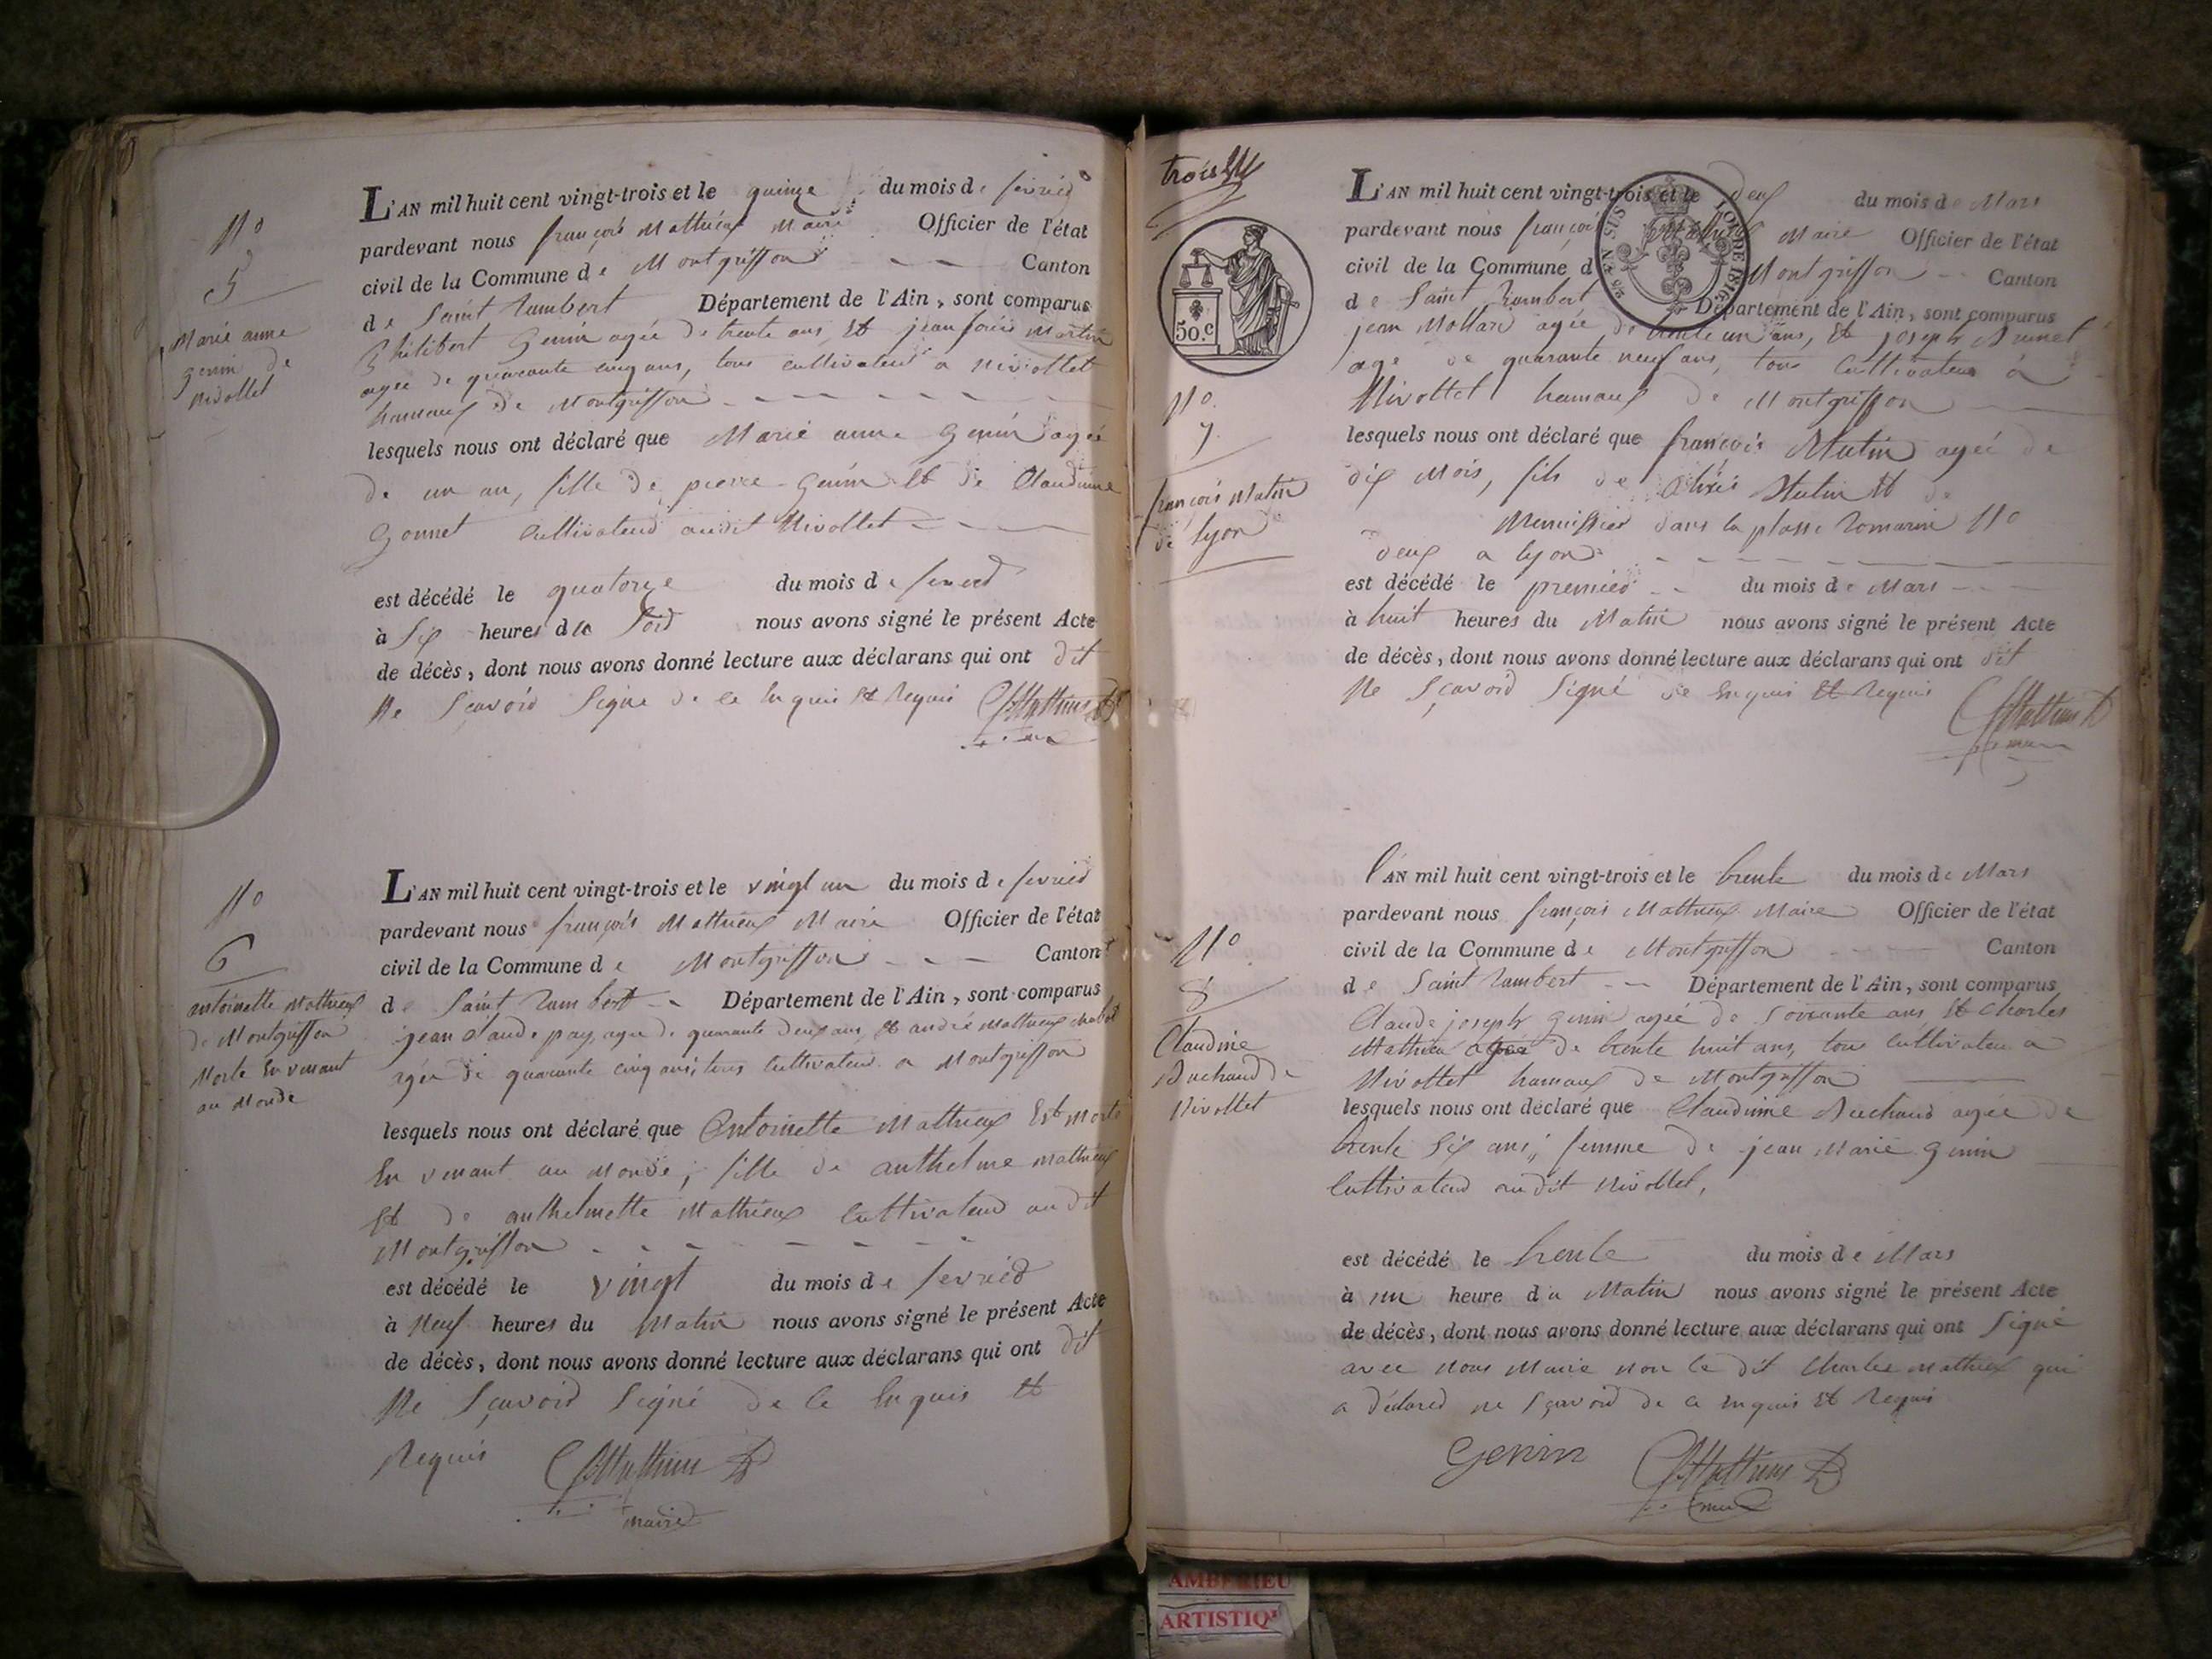 N.o
5
Marie anne
genin de
nivollet
L'AN mil huit cent vingt-trois et le quinze du mois de fevrier
pardevant nous françois Mathieux Maire Officier de l'état
civil de la Commune de Montgriffon Canton
de Saint Rambert Département de l'Ain, sont comparus
Philibert Genin agée de trente ans, Et jean Martin
agée de quarante cinq ans, tous cultivateur a nivollet
hameaux de Montgriffon
lesquels nous ont déclaré que Marie anne Genin agée
de un an, fille de pierre Genin Et de Claudinne
Gonnet Cultivateur audit Nivollet
est décédé le quatorze du mois de fevrier
à Six heures du Soir nous avons signé le présent Acte
de décès, dont nous avons donné lecture aux déclarans qui ont dit
Ne Sçavoir Signé de ce Enquis Et Requis Mathieux
N.o
6
antoinette Mathieux
de Montgriffon
Morte En venant
au Monde
L'AN mil huit cent vingt-trois et le vingt un du mois de fevrier
pardevant nous françois Mathieux Maire Officier de l'état
civil de la Commune de Montgriffon Canton
de Saint Rambert Département de l'Ain, sont comparus
jean Claude pay, agée de quarante deux ans, Et andré Mathieux
agée de quarante cinq ans, tous Cultivateur a Montgriffon
lesquels nous ont déclaré que Antoinette Mathieux Est Morte
En venant au Monde, fille de anthelme Mathieux
Et de anthelmette Mathieux Cultivateur audit
Montgriffon
est décédé le vingt du mois de fevrier
à Neuf heures du Matin nous avons signé le présent Acte
de décès, dont nous avons donné lecture aux déclarans qui ont dit
Ne Sçavoir Signé de Ce Enquis Et
Requis Mathieux
maire
trois
50.c
N.o
7
françois Mutin
de lyon
L'AN mil huit cent vingt-trois et le deux du mois de Mars
pardevant nous françois Mathieux Maire Officier de l'état
civil de la Commune de Montgriffon Canton
de Saint Rambert Département de l'Ain, sont comparus
jean Mollard agée de trente un ans, Et joseph Brunet
age de quarante neuf ans, tous Cultivateur à
Nivollet hameaux de Montgriffon
lesquels nous ont déclaré que françois Mutin agée de
dix Mois, fils de Mutin Et de
Menuisier dans la plasse Romarin N.o
deux a lyon
est décédé le premier du mois de Mars
à huit heures du Matin nous avons signé le présent Acte
de décès, dont nous avons donné lecture aux déclarans qui ont dit
Ne Sçavoir Signé de Enquis Et Requis
Mathieux
maire
EN SUS LOI DE 1816.
N.o
8
Claudine
Buchaud de
Nivollet
L'AN mil huit cent vingt-trois et le trente du mois de Mars
pardevant nous françois Mathieux Maire Officier de l'état
civil de la Commune de Montgriffon Canton
de Saint Rambert Département de l'Ain, sont comparus
Claude joseph genin agée de Soixante ans Et Charles
Mathieu agée de trente huit ans, tous Cultivateur a
Nivollet hameaux de Montgriffon
lesquels nous ont déclaré que Claudinne Buchaud agée de
trente Six ans, femme de jean Marie genin
Cultivateur audit Nivollet,
est décédé le trente du mois de Mars
à une heure du Matin nous avons signé le présent Acte
de décès, dont nous avons donné lecture aux déclarans qui ont Signé
avec nous Maire non le dit Charles Mathieux qui
a déclaré ne Sçavoir de ce Enquis Et Requis
Genin Mathieux
AMBERIEU
ARTISTIQ